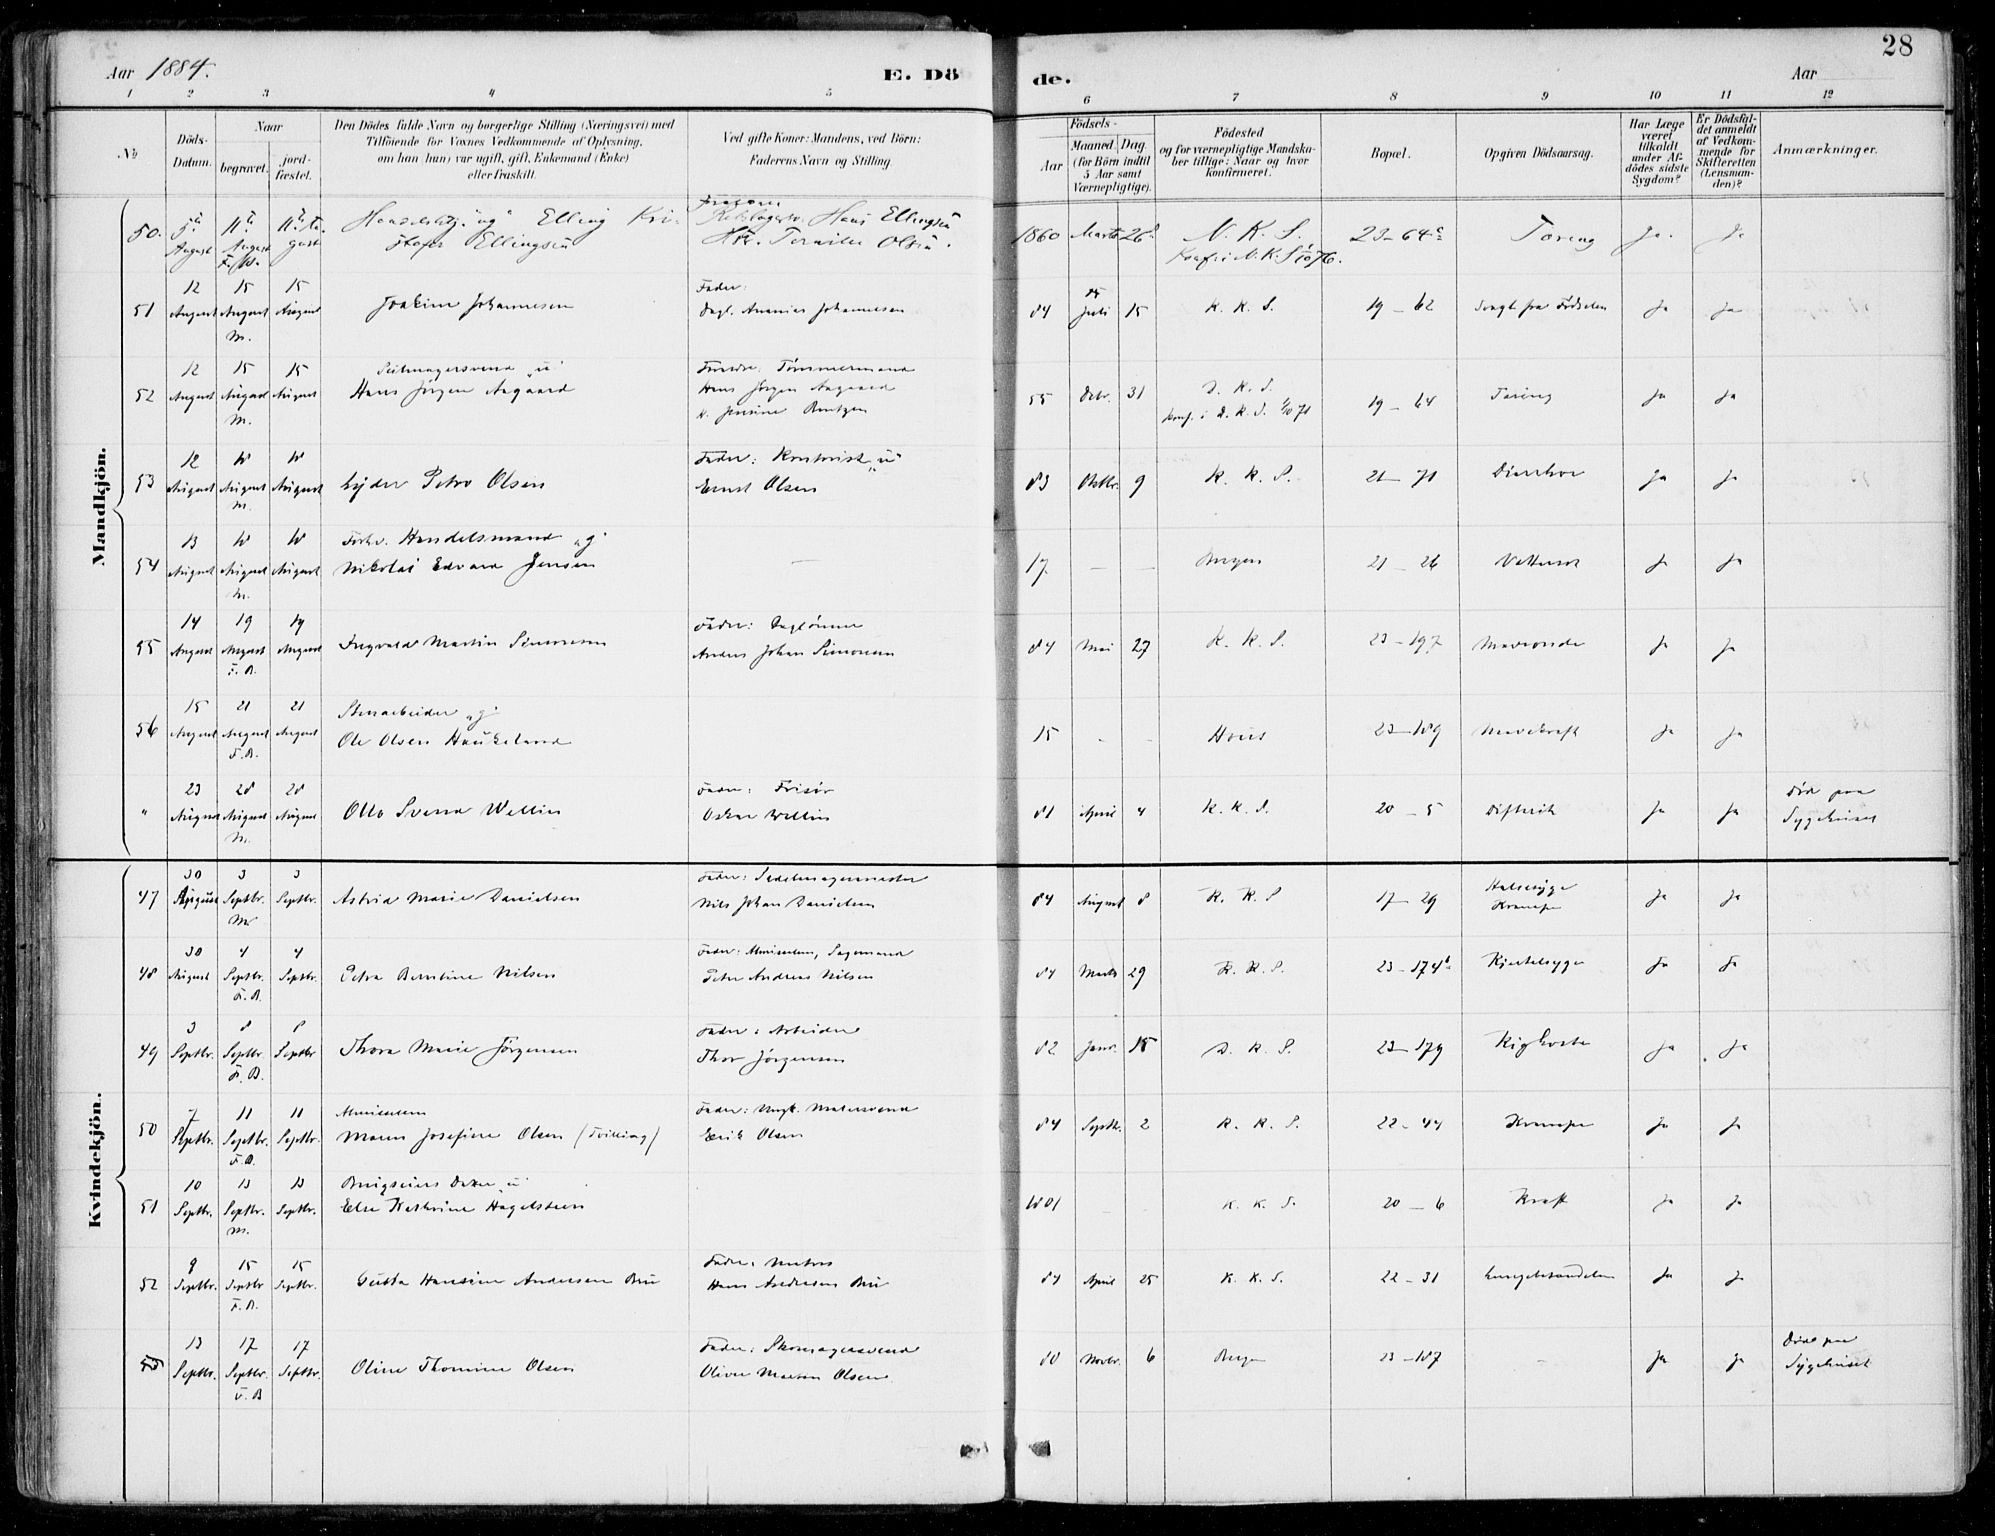 28
Aar 1884.
E. Dö
de.
Aar
1 2 3 4 5 6 7 8 9 10 11 12
No
Döds-
Datum.
Naar
begravet.
jord-
fæstet.
Den Dödes fulde Navn og borgerlige Stilling (Næringsvei) med
Tilföiende for Voxnes Vedkommende af Oplysning,
om han (hun) var ugift, gift, Enkemand (Enke)
eller fraskilt.
Ved gifte Koner: Mandens, ved Börn:
Faderens Navn og Stilling.
Födsels-
Aar
Maaned.
Dag
(for Börn indtil
5 Aar samt
Værnepligtige).
Födested
og for værnepligtige Mandska-
ber tillige: Naar og hvor
konfirmeret.
Bopæl.
Opgiven Dödsaarsag.
Har Læge
været
tilkaldt
under Af-
dödes sidste
Sygdom?
Er Dödsfal-
det anmeldt
af Vedkom-
mende for
Skifteretten
(Lensman-
den)?
Anmærkninger.
Mandkjön.
50. 5 August 11 August 11 August Elling Kri-
stofer Ellingsen
Hans Ellingsen
Olsen.
1860 Marts 26 N. K. S. 23-64 Tæring Ja. Ja
51 12 August 15 August M. 15 August Joakim Johannesen
Fader:
Dagl. Ananias Johannesen
84 Juli 15 K. K. S. 19-62 Svagt fra Fødselen Ja Ja
52 12 August 15 August M. 15 August Seilmagersvend "u"
Hans Jørgen Aagaard
Forældre: Tømmermand
Hans Jørgen Aagaard
K. Jensine Berntzen
55 Decbr. 31 D. K. S.
Konf. i D. K. S. 1/10 71
19-64 Tæring Ja Ja
53 12 August 18 August M. 18 August Eyder Petro Olsen
Fader: Kontorist "u"
Ernst Olsen
83 Oktbr. 9 K. K. S. 21-71 Diarrhoe Ja Ja
54 13 August 18 August M. 18 August Forhv. Handelsmand "g"
Nikolai Edvard Jensen
17 Bergen 21-26 Vattersot Ja Ja
55 14 August 19 August F. B. 19 August Ingvald Martin Simonsen
Fader: Daglønner
Anders Johan Simonsen
84 Mai 27 K. K. S. 23-197 Maveonde Ja Ja
56 15 August 21 August F. B. 21 August Stenarbeider "g"
Ole Olsen Haukeland
15 Hous 23-189 Mavekræft Ja Ja
" 23 August 28 August M. 28 August Otto Svend Wellin
Fader: Frisør
Oskar Wellin
81 April 4 K. K. S. 20-5 Difterit Ja Ja Død paa
Sygehuset
Kvindekjön.
47 30 August 3 Septbr. M. 3 Septbr. Astrid Marie Danielsen
Fader: Sadelmagermester
Nils Johan Danielsen
84 August 8 K. K. S 17-29 Halssyge
Krampe
Ja Ja
48 30 August 4 Septbr. F. B. 4 Septbr. Petra Berntine Nilsen
Fader: Almisselem, Sagemand
Peter Andreas Nilsen
84 Marts 29 K. K. S. 23-174 Kjertelsyge Ja Ja
49 3 Septbr. 8 Septbr. F. B. 8 Septbr Thora Marie Jørgensen
Fader: Arbeider
Thor Jørgensen
82 Janr. 15 D. K. S. 23-179 Kighoste Ja Ja
50 7 Septbr. 11 Septbr. F. B. 11 Septbr. Almisselem
Maren Josefine Olsen (Tvilling)
Fader: Malersvend
Erik Olsen
84 Septbr. 2 K. K. S. 22-44 Krampe Ja Ja
51 10 Septbr. 13 Septbr. M. 13 Septbr. "u"
Else Kathrine Hagelsteen
1801 K. K. S. 20-6 Kræft Ja Ja
52 9 Septbr. 15 Septbr F. B. 15 Septbr. Gusta Hansine Andersen Bru
Fader: Matros
Hans Andersen Bru
84 April 25 K. K. S. 22-31 Lungebetændelse Ja Ja
53 13 Septbr. 17 Septbr. F. B 17 Septbr. Oline Thomine Olsen
Fader: Skomagersvend
Oliver Olsen
80 Novbr. 6 Bergen 23-187 Ja Ja Døde paa
Sygehuset